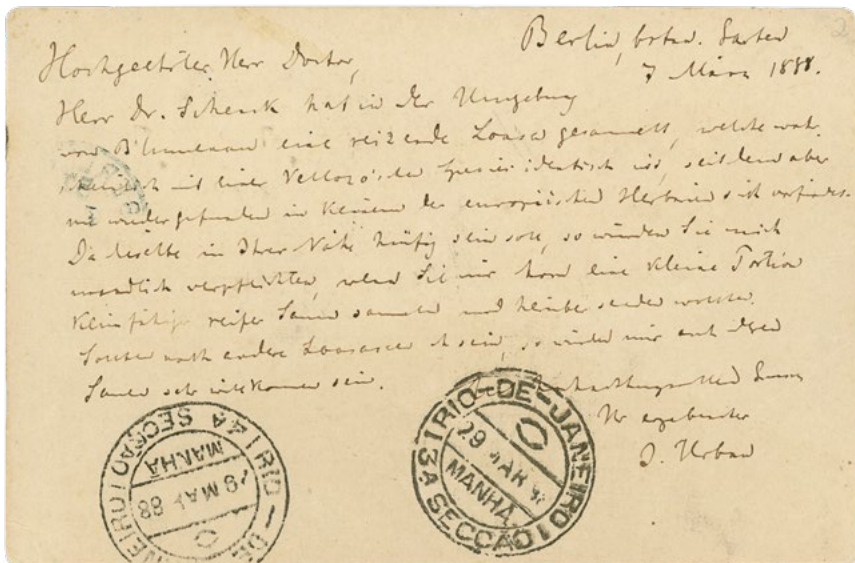 Berlin, botan. Garten
7 März 1888.
Hochgeehrter Herr Doctor,
Herr Dr. Schenck hat in der Umgebung
von Blumenau eine reizende Loasa gesammelt, welche wahr-
scheinlich mit einer Vellozo'schen Species identisch ist, seitdem aber
nie wiedergefunden in keinem der europäischen Herbarien sich vorfindet.
Da dieselbe in Ihrer Nähe häufig sein soll, so würden Sie mich
unendlich verpflichten, wenn Sie mir davon eine kleine Portion
keimfähiger reifer Samen sammeln und herüber senden wollten.
Sollten noch andere Loasaceen da sein, so würden mir auch deren
Samen sehr willkommen sein.
Ihr ergebenster
I. Urban
RIO-DE-JANEIRO
4A SECÇÃO
MANHÃ
88
RIO-DE-JANEIRO
3A SECÇÃO
29 MAR
MANHÃ